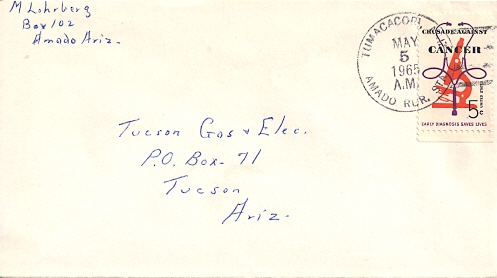 M Lohrberg
Box 102
Amado Ariz.
TUMACACORI,
MAY
5
1965
A.M.
AMADO RUR.
CRUSADE AGAINST
CANCER
5
EARLY DIAGNOSIS SAVES LIVES
Tucson Gas & Elec.
P.O. Box - 71
Tucson
Ariz.